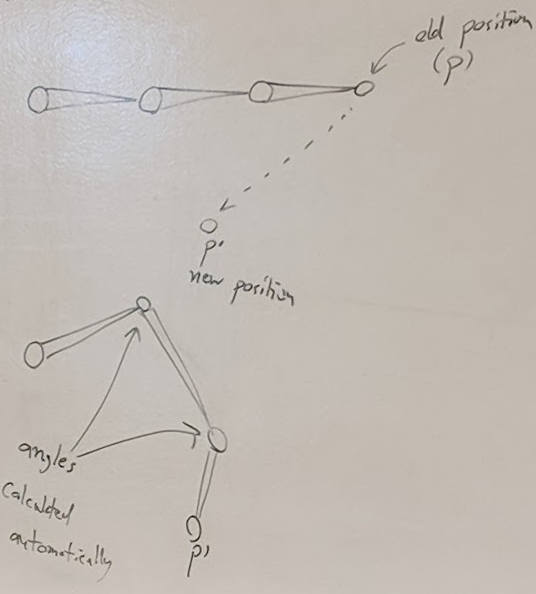 old position
(p)
p'
new position
angles
calculated
automatically
p'